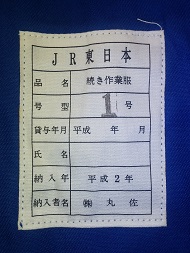 JR東日本
品名 続き作業服
号型 1号
貸与年月 平成 年 月
氏名
納入年 平成2年
納入者名 ㈱丸佐